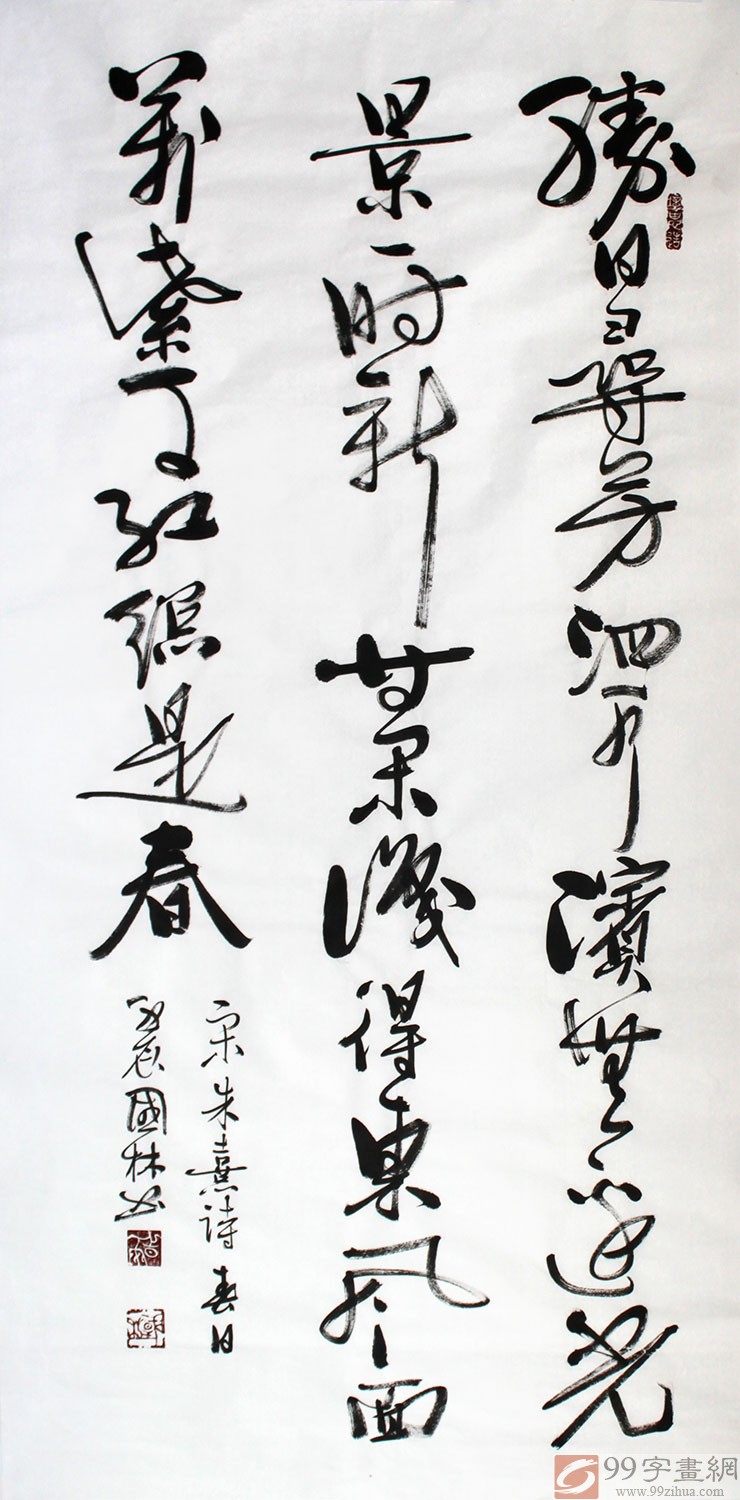 勝日尋芳泗水濱無邊光
景一時新等閒識得東風面
萬紫千紅總是春
宋朱熹詩春日
壬辰國林书
99字畫網
www.99zihua.com